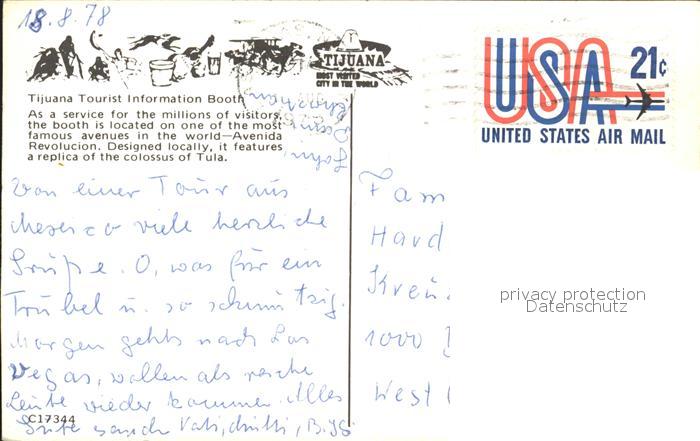 18.8.78
TIJUANA
MOST VISITED
CITY IN THE WORLD
Tijuana Tourist Information Booth
As a service for the millions of visitors,
the booth is located on one of the most
famous avenues in the world—Avenida
Revolucion. Designed locally, it features
a replica of the colossus of Tula.
Von einer Tour aus
Mexico viele herzliche
Grüße. O, was für ein
Trubel u. so schmutzig.
Morgen gehts nach Las
Vegas, wollen als reiche
Leute wieder kommen. Alles
Gute
C17344
USA 21c
UNITED STATES AIR MAIL
Fam
Hard
Kreu
1000
West
privacy protection
Datenschutz